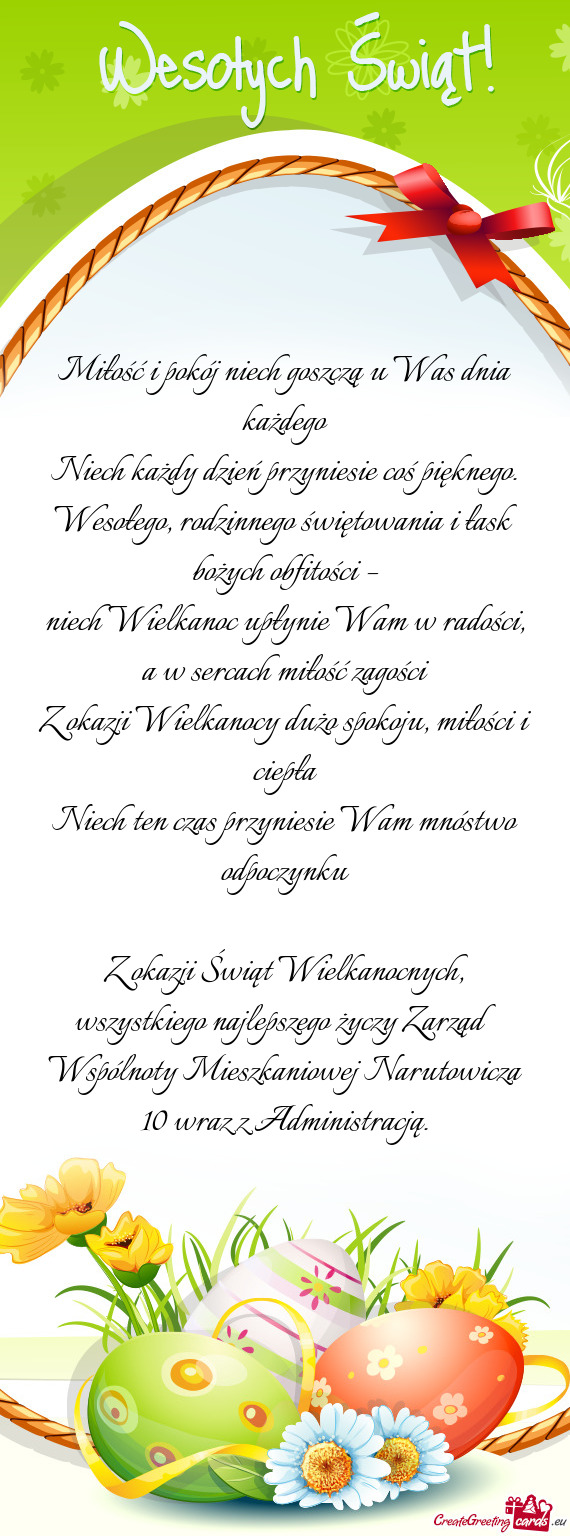 Wesołych Świąt!
Miłość i pokój niech goszczą u Was dnia
każdego
Niech każdy dzień przyniesie coś pięknego.
Wesołego, rodzinnego świętowania i łask
bożych obfitości –
niech Wielkanoc upłynie Wam w radości,
a w sercach miłość zagości
Z okazji Wielkanocy dużo spokoju, miłości i
ciepła
Niech ten czas przyniesie Wam mnóstwo
odpoczynku
Z okazji Świąt Wielkanocnych,
wszystkiego najlepszego życzy Zarząd
Wspólnoty Mieszkaniowej Narutowicza
10 wraz z Administracją.
CreateGreeting cards .eu